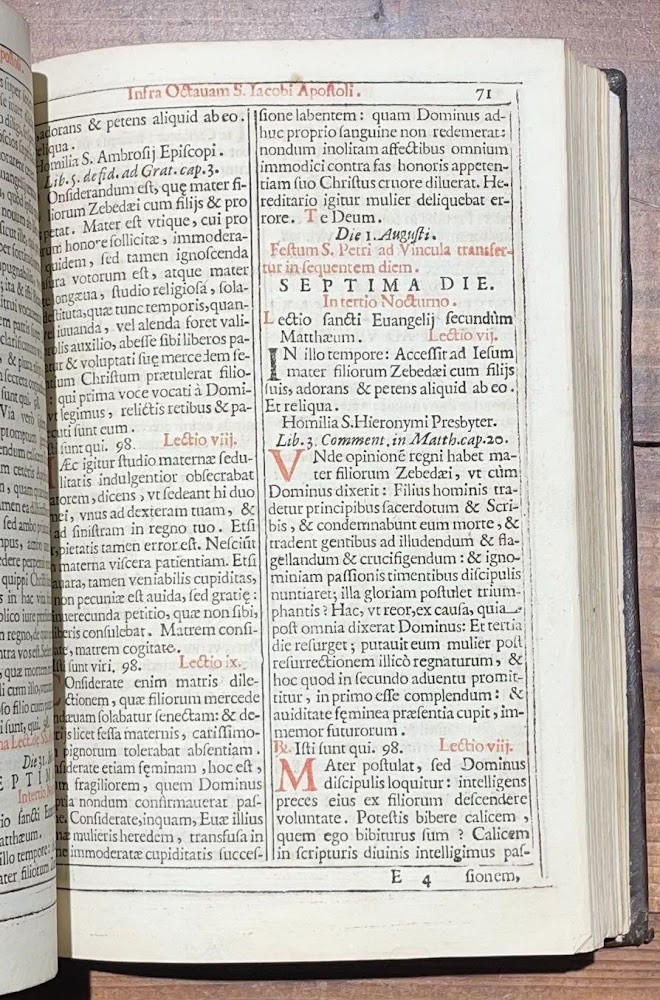 Infra Octauam S. Iacobi Apostoli.
71
adorans & petens aliquid ab eo.
eliqua.
omilia S. Ambrosij Episcopi.
Lib. 5. de fid. ad Grat. cap. 3.
Onsiderandum est, quę mater fi-
liorum Zebedæi cum filijs & pro
petat. Mater est vtique, cui pro
rum honore sollicitæ, immodera-
quidem, sed tamen ignoscenda
sura votorum est, atque mater
longæua, studio religiosa, sola-
destituta, quæ tunc temporis, quan-
iuuanda, vel alenda foret vali-
rolis auxilio, abesse sibi liberos pa-
tur & voluptati suę mercedem se-
tium Christum prætulerat filio-
qui prima voce vocati à Domi-
vt legimus, relictis retibus & pa-
cuti sunt eum.
sti sunt qui. 98. Lectio viij.
Æc igitur studio maternæ sedu-
litatis indulgentior obsecrabat
atorem, dicens, vt sedeant hi duo
mei, vnus ad dexteram tuam, &
ad sinistram in regno tuo. Etsi
pietatis tamen error est. Nesciūt
materna viscera patientiam. Etsi
auara, tamen veniabilis cupiditas,
non pecuniæ est auida, sed gratię:
inuerecunda petitio, quæ non sibi,
liberis consulebat. Matrem consi-
ate, matrem cogitate.
Isti sunt viri, 98. Lectio ix.
Onsiderate enim matris dile-
ctionem, quæ filiorum mercede
ndæuam solabatur senectam: & de-
ijs licet fessa maternis, carissimo-
pignorum tolerabat absentiam.
nsiderate etiam fęminam, hoc est,
m fragiliorem, quem Dominus
pria nondum confirmauerat pas-
ne. Considerate, inquam, Euæ illius
næ mulieris heredem, transfusa in
ne immoderatæ cupiditatis succes-
sione labentem: quam Dominus ad-
huc proprio sanguine non redemerat:
nondum inolitam affectibus omnium
immodici contra fas honoris appeten-
tiam suo Christus cruore diluerat. He-
reditario igitur mulier deliquebat er-
rore. Te Deum.
Die 1. Augusti.
Festum S. Petri ad Vincula transfer-
tur in sequentem diem.
SEPTIMA DIE.
In tertio Nocturno.
Lectio sancti Euangelij secundùm
Matthæum. Lectio vij.
IN illo tempore: Accessit ad Iesum
mater filiorum Zebedæi cum filijs
suis, adorans & petens aliquid ab eo.
Et reliqua.
Homilia S. Hieronymi Presbyter.
Lib. 3. Comment. in Matth. cap. 20.
VNde opinionē regni habet ma-
ter filiorum Zebedæi, vt cùm
Dominus dixerit: Filius hominis tra-
detur principibus sacerdotum & Scri-
bis, & condemnabunt eum morte, &
tradent gentibus ad illudendum & fla-
gellandum & crucifigendum: & igno-
miniam passionis timentibus discipulis
nuntiaret; illa gloriam postulet trium-
phantis? Hac, vt reor, ex causa, quia
post omnia dixerat Dominus: Et tertia
die resurget; putauit eum mulier post
resurrectionem illicò regnaturum, &
hoc quod in secundo aduentu promit-
titur, in primo esse complendum: &
auiditate fęminea præsentia cupit, im-
memor futurorum.
℟. Isti sunt qui. 98. Lectio viij.
MAter postulat, sed Dominus
discipulis loquitur: intelligens
preces eius ex filiorum descendere
voluntate. Potestis bibere calicem,
quem ego bibiturus sum? Calicem
in scripturis diuinis intelligimus pas-
E 4 sionem,